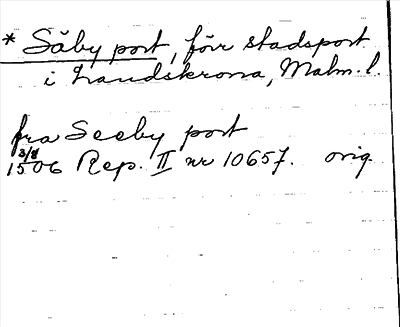 * Säby port, förr stadsport
i Landskrona, Malm. l.
fra Seeby port
3/8
1506 Rep. II nr 10657. orig.